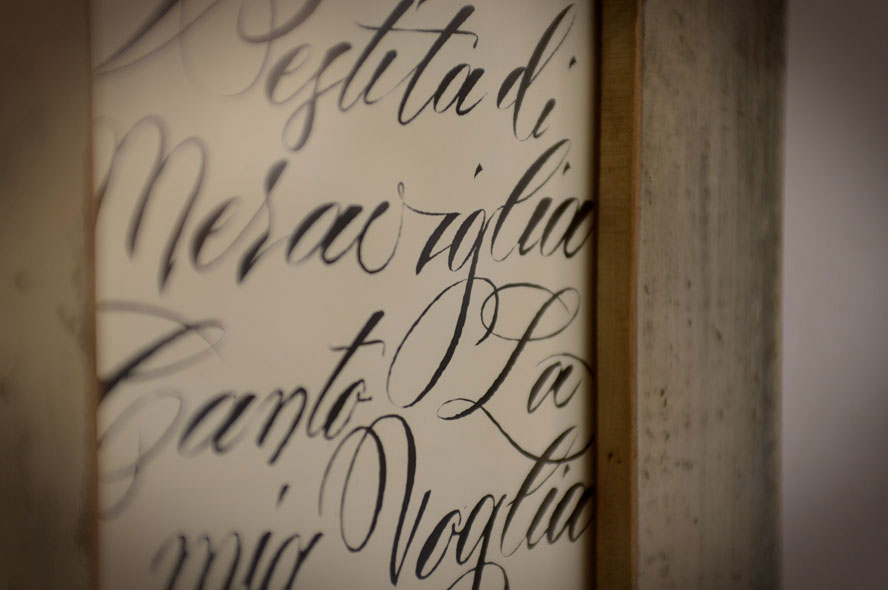 Vestita di
Meraviglia
Canto La
mia Voglia